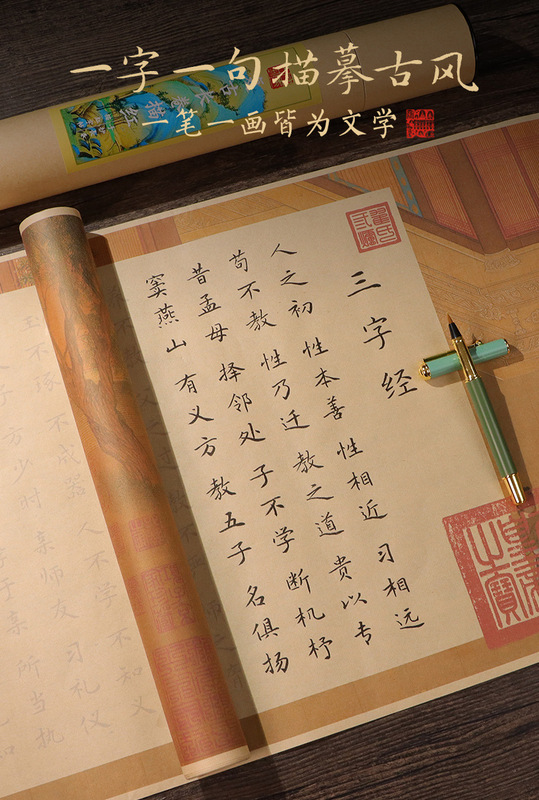 一字一句描摹古风
一笔一画皆为文学
三字经
人之初 性本善 性相近 习相远
苟不教 性乃迁 教之道 贵以专
昔孟母 择邻处 子不学 断机杼
窦燕山 有义方 教五子 名俱扬
玉不琢 不成器 人不学 不知义
子 方少时 亲师友 习礼仪
于亲 所当执